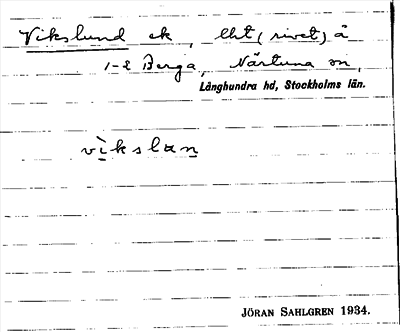 Vikslund ek, lht (rivet) å
1-2 Berga, Närtuna sn,
Långhundra hd, Stockholms län.
vìkslan
JÖRAN SAHLGREN 1934.